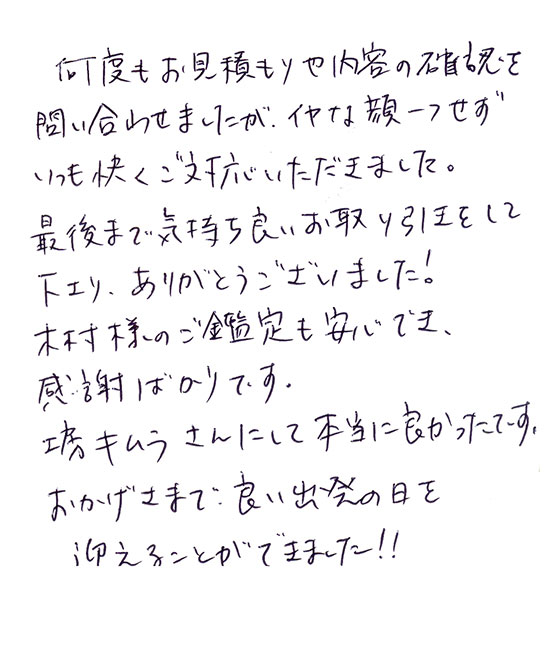 何度もお見積もりや内容の確認を
問い合わせましたが、イヤな顔一つせず
いつも快くご対応いただきました。
最後まで気持ち良いお取り引きをして
下エり、ありがとうございました!
木村様のご鑑定も安心でき、
感謝ばかりです.
工房キムラさんにして本当に良かったです.
おかげさまで、良い出発の日を
迎えることができました!!